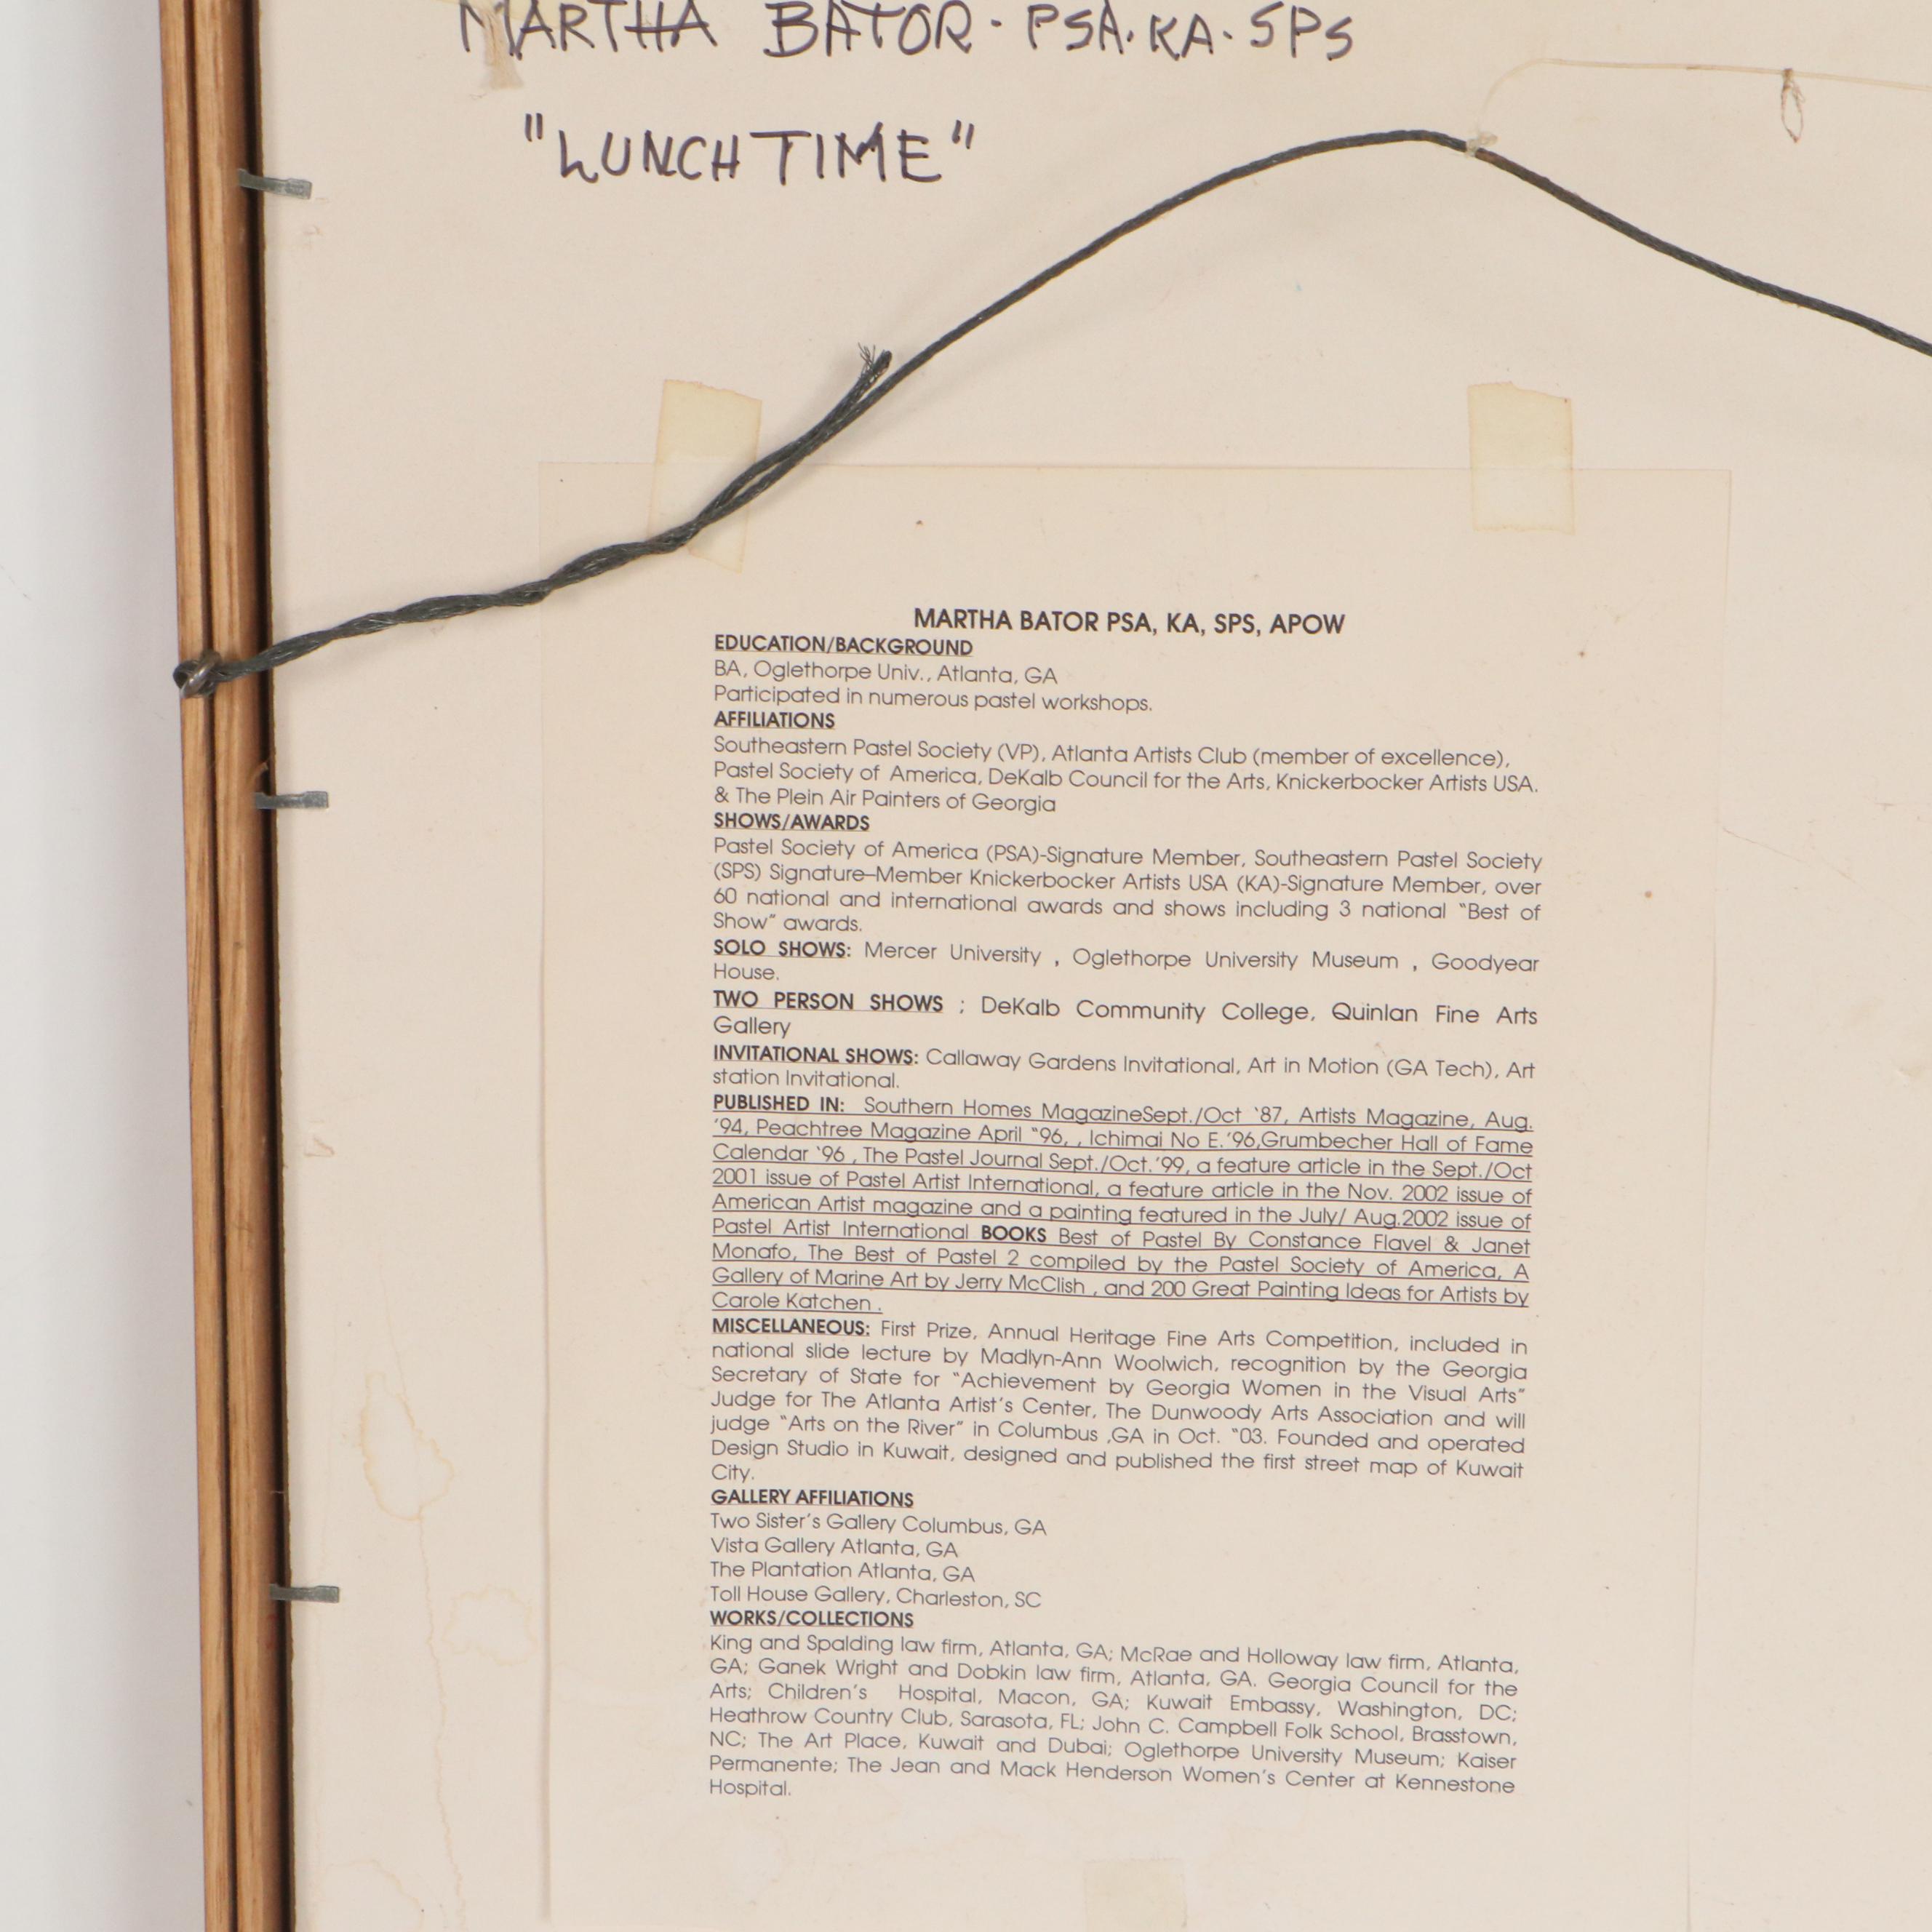 MARTHA BATOR - PSA. KA. SPS
"LUNCH TIME"
MARTHA BATOR PSA, KA, SPS, APOW
EDUCATION/BACKGROUND
BA, Oglethorpe Univ., Atlanta, GA
Participated in numerous pastel workshops.
AFFILIATIONS
Southeastern Pastel Society (VP), Atlanta Artists Club (member of excellence),
Pastel Society of America, DeKalb Council for the Arts, Knickerbocker Artists USA.
& The Plein Air Painters of Georgia
SHOWS/AWARDS
Pastel Society of America (PSA)-Signature Member, Southeastern Pastel Society
(SPS) Signature–Member Knickerbocker Artists USA (KA)-Signature Member, over
60 national and international awards and shows including 3 national "Best of
Show" awards.
SOLO SHOWS: Mercer University , Oglethorpe University Museum , Goodyear
House.
TWO PERSON SHOWS ; DeKalb Community College, Quinlan Fine Arts
Gallery
INVITATIONAL SHOWS: Callaway Gardens Invitational, Art in Motion (GA Tech), Art
station Invitational.
PUBLISHED IN: Southern Homes MagazineSept./Oct '87, Artists Magazine, Aug.
'94, Peachtree Magazine April "96, , Ichimai No E.'96,Grumbecher Hall of Fame
Calendar '96 , The Pastel Journal Sept./Oct.'99, a feature article in the Sept./Oct
2001 issue of Pastel Artist International, a feature article in the Nov. 2002 issue of
American Artist magazine and a painting featured in the July/ Aug.2002 issue of
Pastel Artist International BOOKS Best of Pastel By Constance Flavel & Janet
Monafo, The Best of Pastel 2 compiled by the Pastel Society of America, A
Gallery of Marine Art by Jerry McClish , and 200 Great Painting Ideas for Artists by
Carole Katchen .
MISCELLANEOUS: First Prize, Annual Heritage Fine Arts Competition, included in
national slide lecture by Madlyn-Ann Woolwich, recognition by the Georgia
Secretary of State for "Achievement by Georgia Women in the Visual Arts"
Judge for The Atlanta Artist's Center, The Dunwoody Arts Association and will
judge "Arts on the River" in Columbus ,GA in Oct. "03. Founded and operated
Design Studio in Kuwait, designed and published the first street map of Kuwait
City.
GALLERY AFFILIATIONS
Two Sister's Gallery Columbus, GA
Vista Gallery Atlanta, GA
The Plantation Atlanta, GA
Toll House Gallery, Charleston, SC
WORKS/COLLECTIONS
King and Spalding law firm, Atlanta, GA; McRae and Holloway law firm, Atlanta,
GA; Ganek Wright and Dobkin law firm, Atlanta, GA. Georgia Council for the
Arts; Children's Hospital, Macon, GA; Kuwait Embassy, Washington, DC;
Heathrow Country Club, Sarasota, FL; John C. Campbell Folk School, Brasstown,
NC; The Art Place, Kuwait and Dubai; Oglethorpe University Museum; Kaiser
Permanente; The Jean and Mack Henderson Women's Center at Kennestone
Hospital.